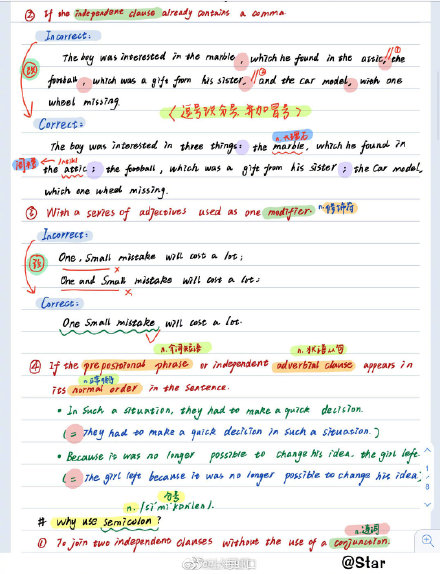 ② If the independent clause already contains a comma
Incorrect:
The boy was interested in the marble, which he found in the attic, the ①
改
football, which was a gift from his sister, ② and the car model, with one
wheel missing.
<逗号改分号 并加冒号>
Correct:
n.大理石
The boy was interested in three things: the marble, which he found in
阁楼 /ˈætɪk/
the attic; the football, which was a gift from his sister; the car model,
which one wheel missing.
③ With a series of adjectives used as one modifier. n.修饰符
Incorrect:
改
One, small mistake will cost a lot;
×
One and small mistake will cost a lot.
×
Correct:
One small mistake will cost a lot.
n.介词短语 n.状语从句
④ If the prepositional phrase or independent adverbial clause appears in
its normal order in the sentence.
• In such a situation, they had to make a quick decision.
(= They had to make a quick decision in such a situation.)
• Because it was no longer possible to change his idea, the girl left.
(= The girl left because it was no longer possible to change his idea.
分号
n. /
# Why use semicolon?
n.连词
① To join two independent clauses without the use of a conjunction.
@Star